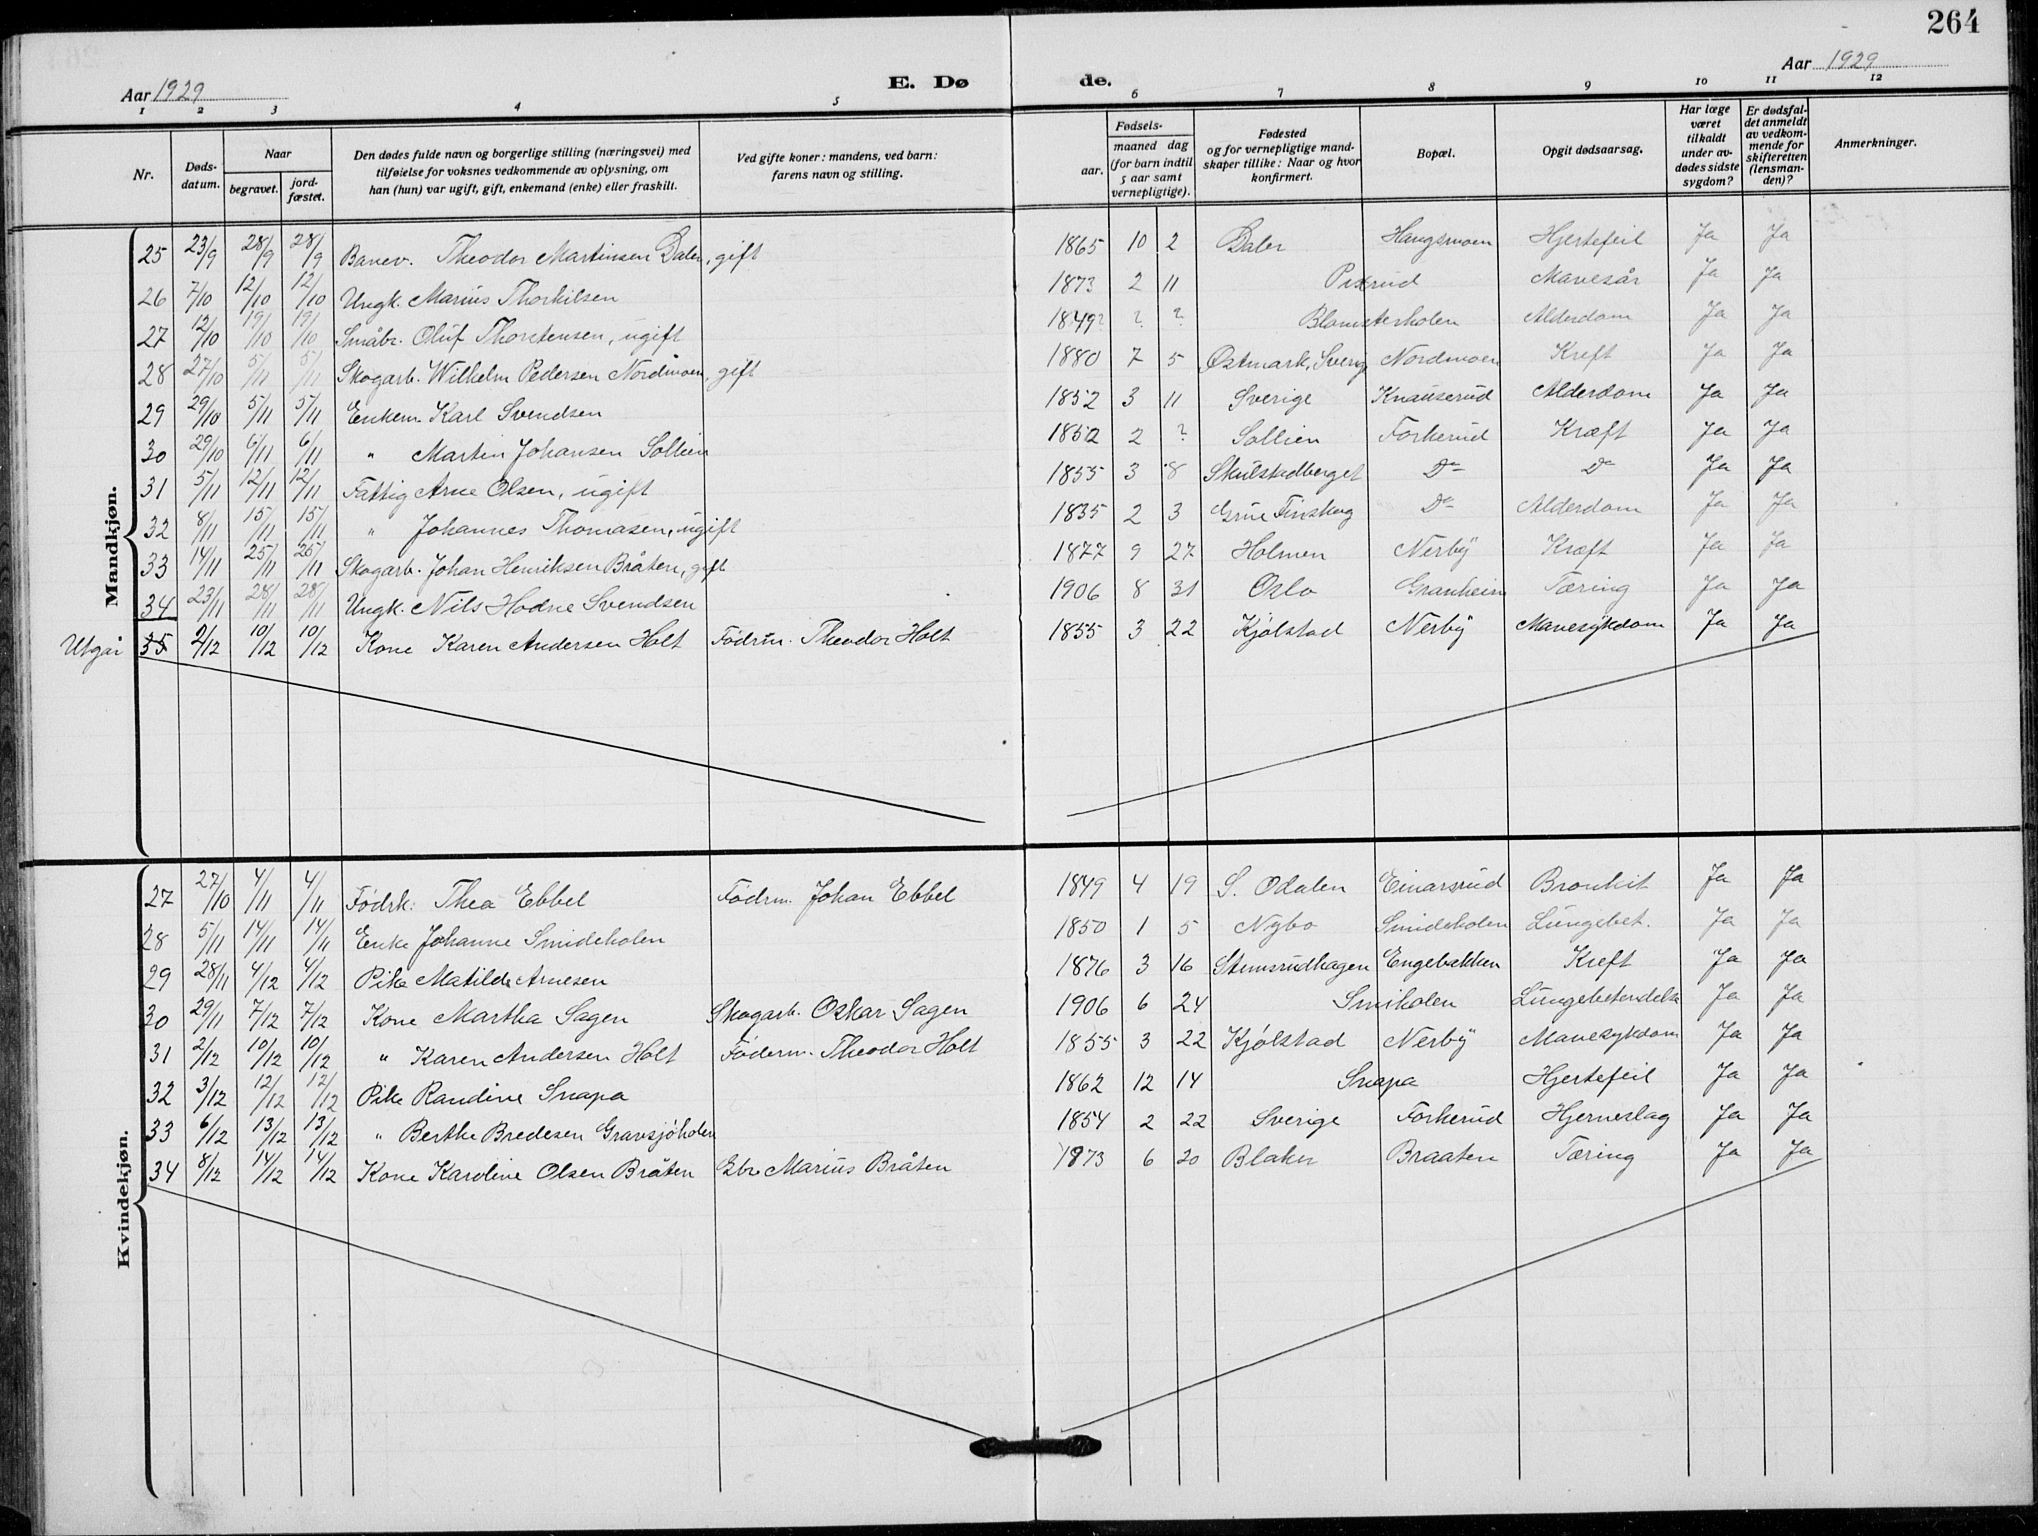 264
Aar 1929 E. Dø de. Aar 1929
1 2 3 4 5 6 7 8 9 10 11 12
Nr. Døds-datum. Naar begravet. jord-fæstet. Den dødes fulde navn og borgerlige stilling (næringsvei) med tilføielse for voksnes vedkommende av oplysning, om han (hun) var ugift, gift, enkemand (enke) eller fraskilt. Ved gifte koner: mandens, ved barn: farens navn og stilling. Fødsels- aar. maaned dag (for barn indtil 5 aar samt vernepligtige). Fødested og for vernepligtige mand-skaper tillike: Naar og hvor konfirmert. Bopæl. Opgit dødsaarsag. Har læge været tilkaldt under av-dødes sidste sygdom? Er dødsfal-det anmeldt av vedkom-mende for skifteretten (lensman-den)? Anmerkninger.
Mandkjøn.
25 23/9 28/9 28/9 Banev. Theodor Martinsen Daler, gift 1865 10 2 Daler Haugsmoen Hjertefeil Ja Ja
26 7/10 12/10 12/10 Ungk. Marius Thorkilsen 1873 2 11 Pixrud Mavesår Ja Ja
27 12/10 19/10 19/10 Småbr. Oluf Thorstensen, ugift 1849? ? ? Blomsterholen Alderdom Ja Ja
28 27/10 5/11 5/11 Skogarb. Wilhelm Pedersen Nordmoen, gift 1880 7 5 Østmark, Sverig Nordmoen Kreft Ja Ja
29 29/10 5/11 5/11 Enkem. Karl Svendsen 1852 3 11 Sverige Knauserud Alderdom Ja Ja
30 29/10 6/11 6/11 " Martin Johansen Sollien 1852 2 ? Sollien Forkerud Kræft Ja Ja
31 5/11 12/11 12/11 Fattig Arne Olsen, ugift 1855 3 8 Skulstadberget Do Do Ja Ja
32 8/11 15/11 15/11 " Johannes Thomasen, ugift 1835 2 3 Grue Finskog Do Alderdom Ja Ja
33 14/11 25/11 25/11 Skogarb. Johan Henriksen Bråten, gift 1877 9 27 Holmen Nerby Kræft Ja Ja
34 23/11 28/11 28/11 Ungk. Nils Hodne Svendsen 1906 8 31 Oslo Granheim Tæring Ja Ja
Utgår 35 2/12 10/12 10/12 Kone Karen Andersen Holt Fødrm. Theodor Holt 1855 3 22 Kjølstad Nerby Mavesykdom Ja Ja
Kvindekjøn.
27 27/10 4/11 4/11 Fødrk. Thea Ebbel Fødrm. Johan Ebbel 1849 4 19 S. Odalen Einarsrud Bronkit Ja Ja
28 5/11 14/11 14/11 Enke Johanne Smideholen 1850 1 5 Nybo Smideholen Lungebet. Ja Ja
29 28/11 4/12 4/12 Pike Matilde Arnesen 1876 3 16 Stemsrudhagen Engebakken Kreft Ja Ja
30 29/11 7/12 7/12 Kone Martha Sagen Skogarb. Oskar Sagen 1906 6 24 Smiholen Lungebetendelse Ja Ja
31 2/12 10/12 10/12 " Karen Andersen Holt Føderm. Theodor Holt 1855 3 22 Kjølstad Nerby Mavesykdom Ja Ja
32 3/12 12/12 12/12 Pike Randine Snapa 1862 12 14 Snapa Hjertefeil Ja Ja
33 6/12 13/12 13/12 " Berthe Bredesen Gravsjøholen 1854 2 22 Sverige Forkerud Hjerneslag Ja Ja
34 8/12 14/12 14/12 Kone Karoline Olsen Bråten Gbr Marius Bråten 1873 6 20 Blaker Braaten Tæring Ja Ja